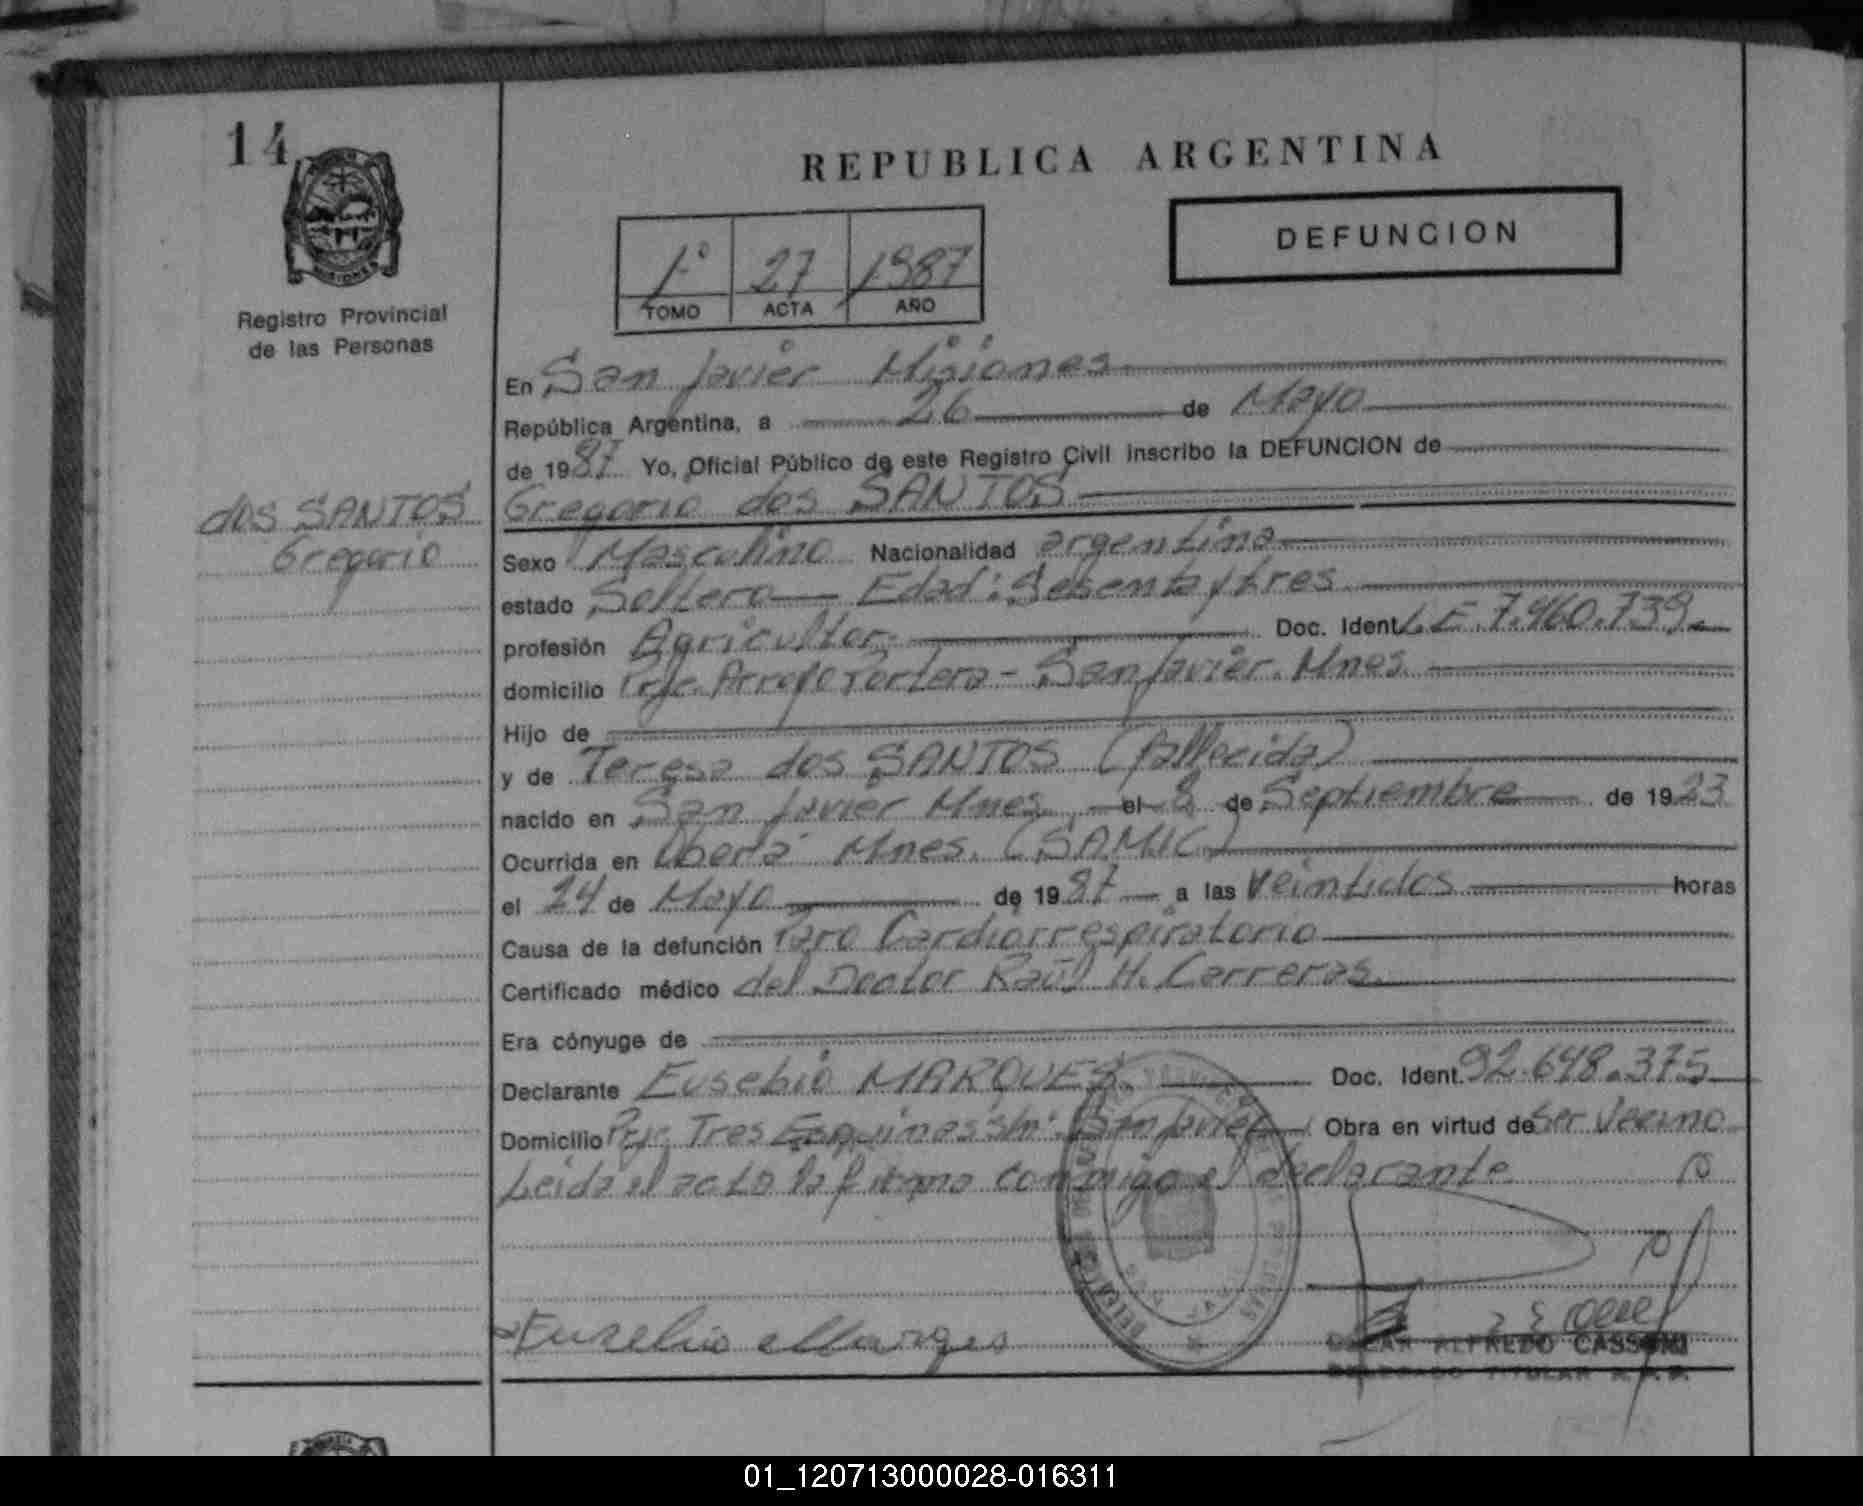 14
REPUBLICA ARGENTINA
DEFUNCION
1º 27 1987
TOMO ACTA AÑO
Registro Provincial
de las Personas
En San Javier Misiones
República Argentina, a 26 de Mayo
de 1987 Yo, Oficial Público de este Registro Civil inscribo la DEFUNCION de
dos SANTOS
Gregorio
Gregorio dos SANTOS
Sexo Masculino Nacionalidad argentina
estado Soltero Edad: Sesentaytres
profesión Agricultor. Doc. Ident. L.E. 7.460.739
domicilio Pje. Arroyo Portera - San Javier. Mnes.
Hijo de
y de Teresa dos SANTOS (fallecida)
nacido en San Javier Mnes. el 8 de Septiembre de 1923
Ocurrida en Oberá Mnes. (SAMIC)
el 24 de Mayo de 1987 a las Veintidos horas
Causa de la defunción Paro Cardiorrespiratorio
Certificado médico del Doctor Raúl H. Carreras.
Era cónyuge de
Declarante Eusebio MARQUES. Doc. Ident. 92.648.375
Domicilio Pje. Tres Esquinas s/n: San Javier Obra en virtud de Ser Vecino
Leida el acto la firma conmigo el declarante.
Euzebio Marques
OSCAR ALFREDO CASSONI
DELEGADO TITULAR R.P.P.
01_120713000028-016311